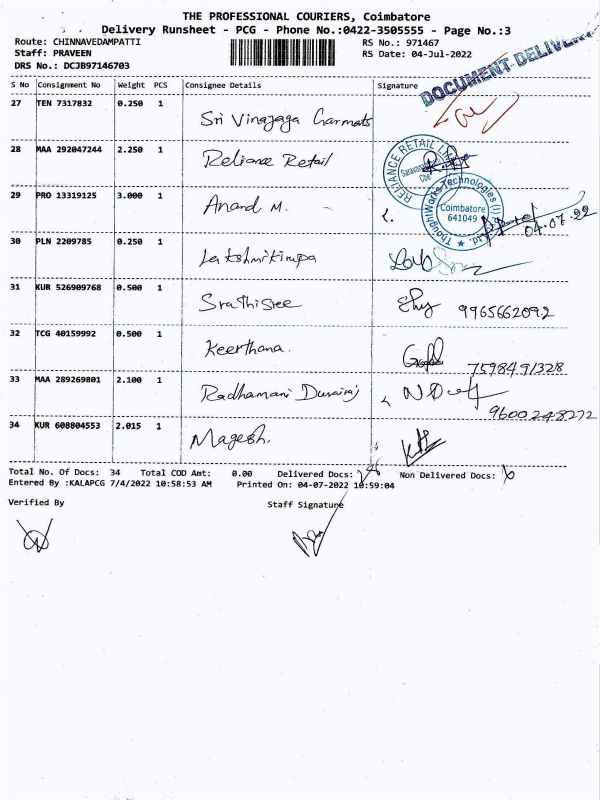 THE PROFESSIONAL COURIERS, Coimbatore
Delivery Runsheet - PCG - Phone No.:0422-3505555 - Page No.:3
Route: CHINNAVEDAMPATTI RS No.: 971467
Staff: PRAVEEN RS Date: 04-Jul-2022
DRS No.: DCJB97146703
DOCUMENT DELIVER
S No Consignment No Weight PCS Consignee Details Signature
27 TEN 7317832 0.250 1 Sri Vinayaga Garmats
28 MAA 292047244 2.250 1 Reliance Retail
RELIANCE RETAIL
29 PRO 13319125 3.000 1 Anand M.
ThoughtWorks Technologies (I) Ltd.
Coimbatore
641049
04.07.22
30 PLN 2209785 0.250 1
31 KUR 526909768 0.500 1 9965662092
32 TCG 40159992 0.500 1 Keerthana. 7598491328
33 MAA 289269801 2.100 1 Radhamani Durairaj 9600248272
34 KUR 608804553 2.015 1 Magesh.
Total No. Of Docs: 34 Total COD Amt: 0.00 Delivered Docs: Non Delivered Docs:
Entered By :KALAPCG 7/4/2022 10:58:53 AM Printed On: 04-07-2022 10:59:04
Verified By Staff Signature